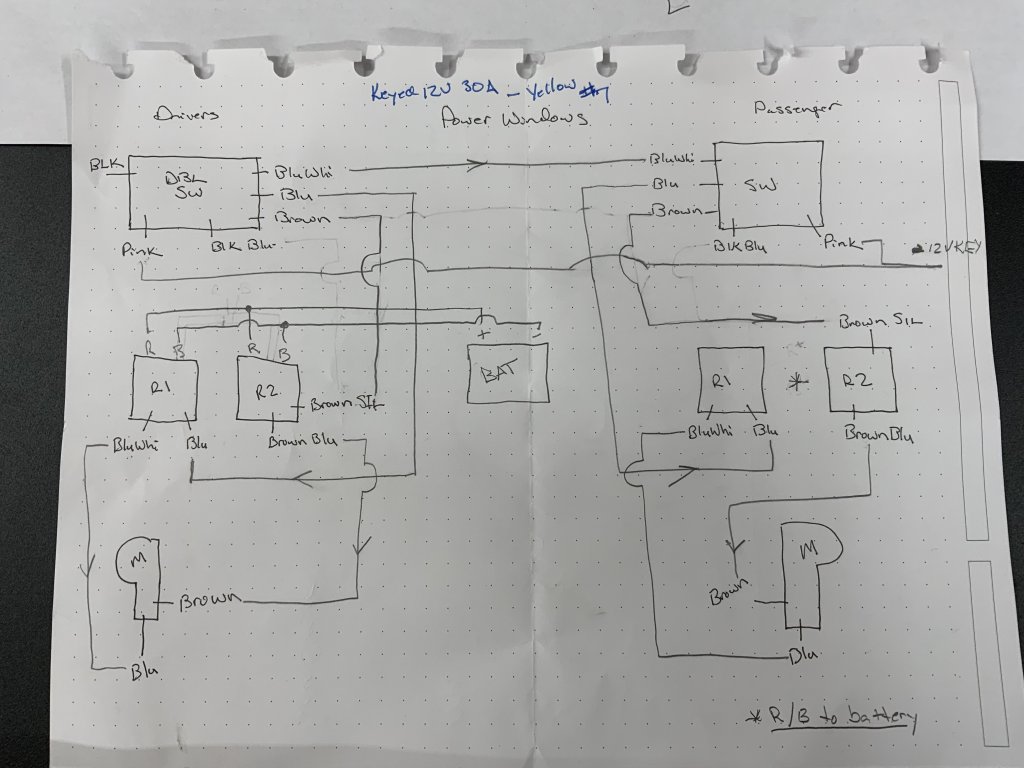 Keyed 12V 30A - Yellow #7
Drivers
Power Windows
Passenger
BLK
DBL SW
BluWhi
Blu
Brown
Pink
BlK Blu
BluWhi
Blu
Brown
SW
BlK Blu
Pink
12V KEY
R
B
R
B
+
-
BAT
R1
R2
Brown SIL
BluWhi
Blu
Brown Blu
Brown SIL
R1
*
R2
BluWhi
Blu
Brown Blu
M
Brown
Blu
M
Brown
Blu
* R/B to battery